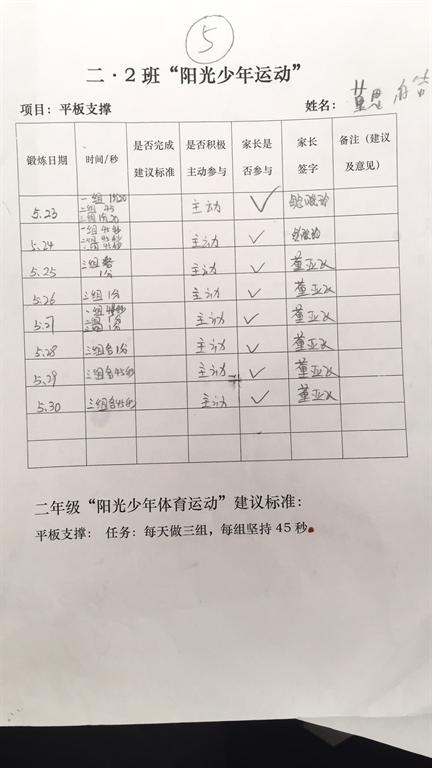 5
二·2班“阳光少年运动”
项目：平板支撑 姓名：董思
锻炼日期 时间/秒 是否完成建议标准 是否积极主动参与 家长是否参与 家长签字 备注（建议及意见）
5.23 一组1分20 二组45 三组1分20 主动 ✓
5.24 一组45秒 二组45秒 三组45秒 主动 ✓
5.25 三组各1分 主动 ✓ 董亚
5.26 三组1分 主动 ✓ 董亚
5.27 一组 二组1分 三组1分 主动 ✓ 董亚
5.28 三组各1分 主动 ✓ 董亚
5.29 三组各45秒 主动 ✓ 董亚
5.30 三组各45秒 主动 ✓ 董亚
二年级“阳光少年体育运动”建议标准：
平板支撑： 任务：每天做三组，每组坚持45秒。